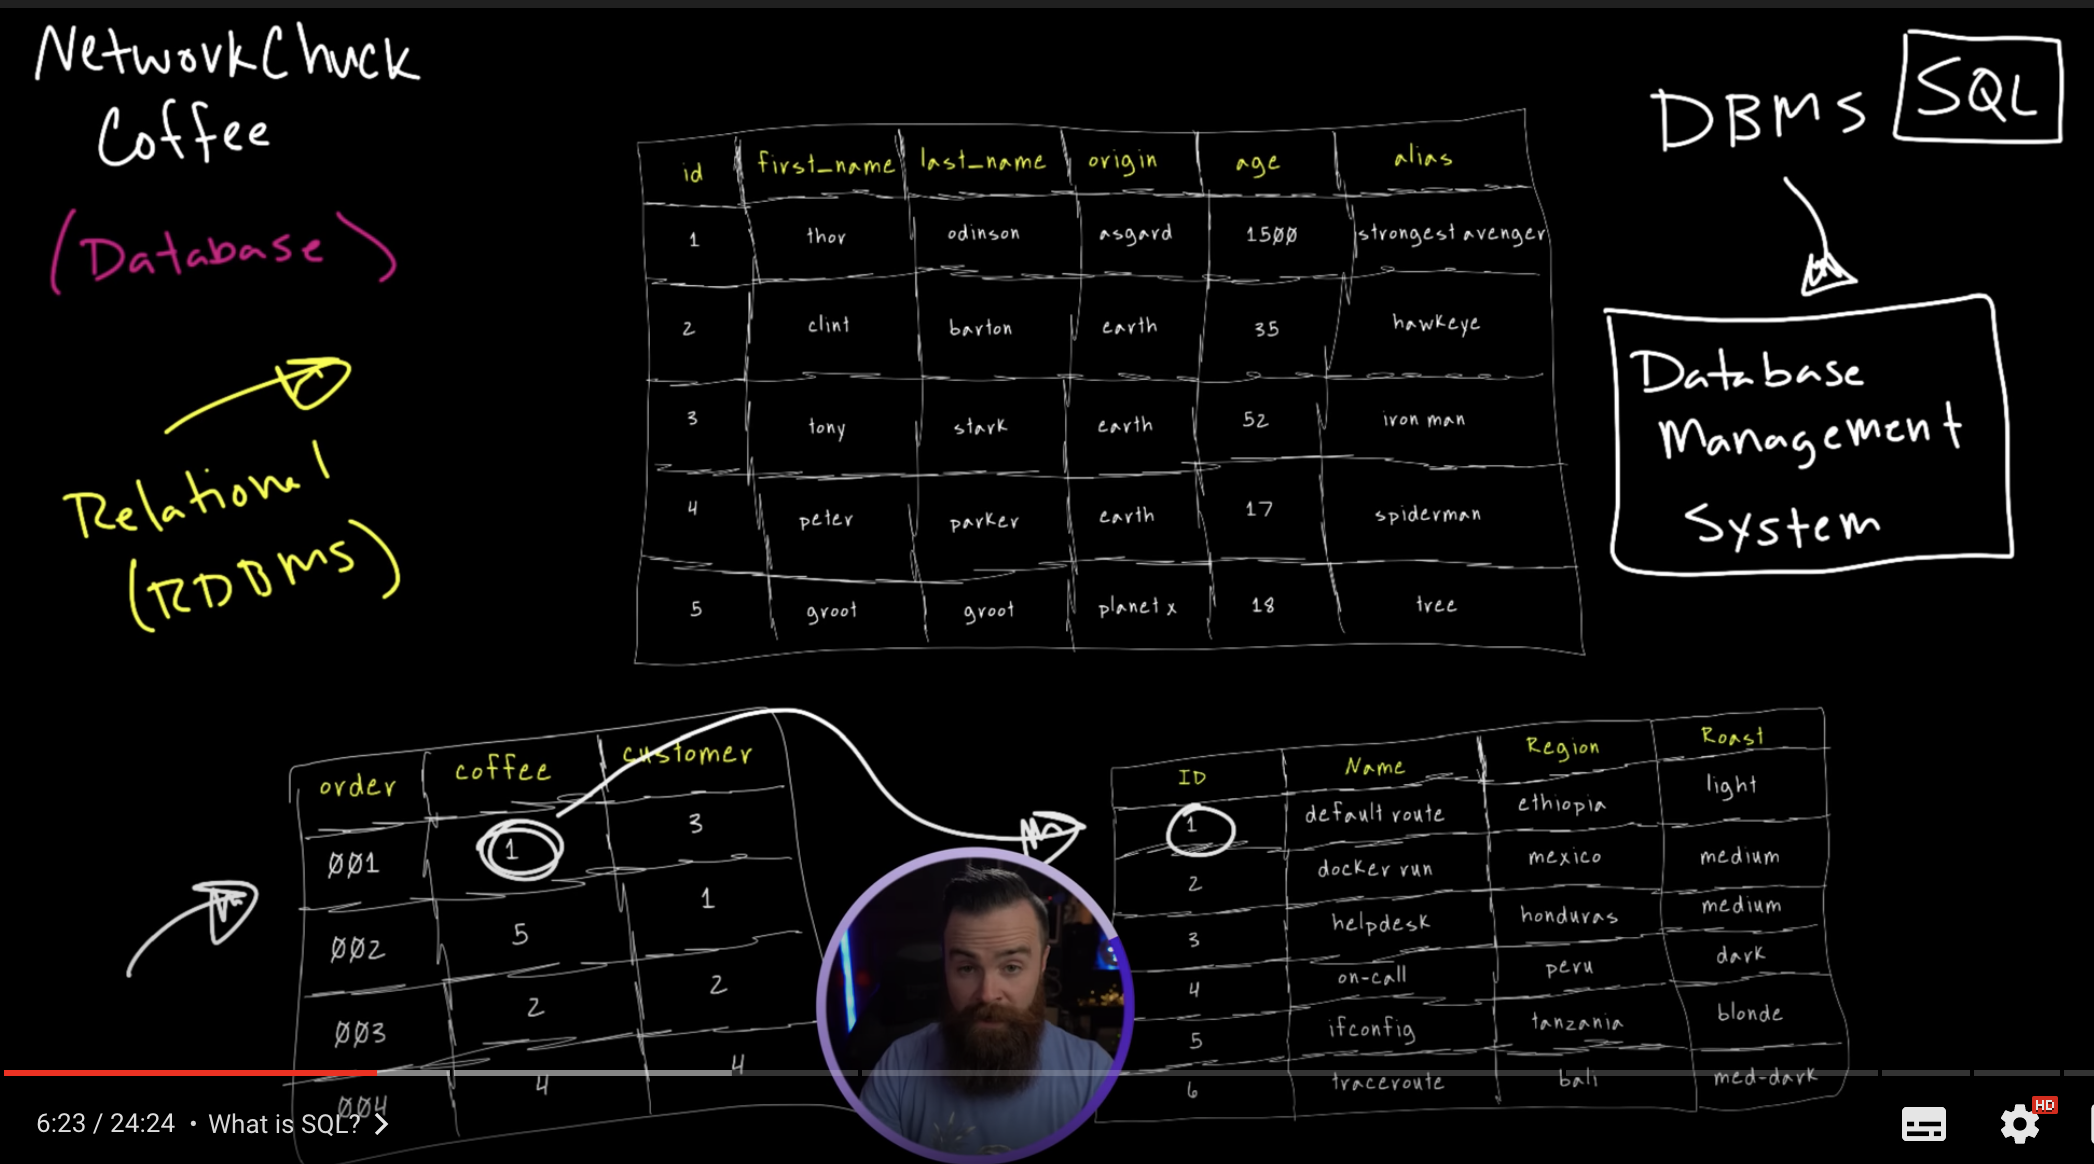 NetworkChuck
Coffee
(Database)
Relational
(RDBMS)
DBMS SQL
Database
Management
System
id first_name last_name origin age alias
1 thor odinson asgard 1500 strongest avenger
2 clint barton earth 35 hawkeye
3 tony stark earth 52 iron man
4 peter parker earth 17 spiderman
5 groot groot planet x 18 tree
order coffee customer
001 1 3
002 5 1
003 2 2
004 4 4
ID Name Region Roast
1 default route ethiopia light
2 docker run mexico medium
3 helpdesk honduras medium
4 on-call peru dark
5 ifconfig tanzania blonde
6 traceroute bali med-dark
6:23 / 24:24 • What is SQL?
HD